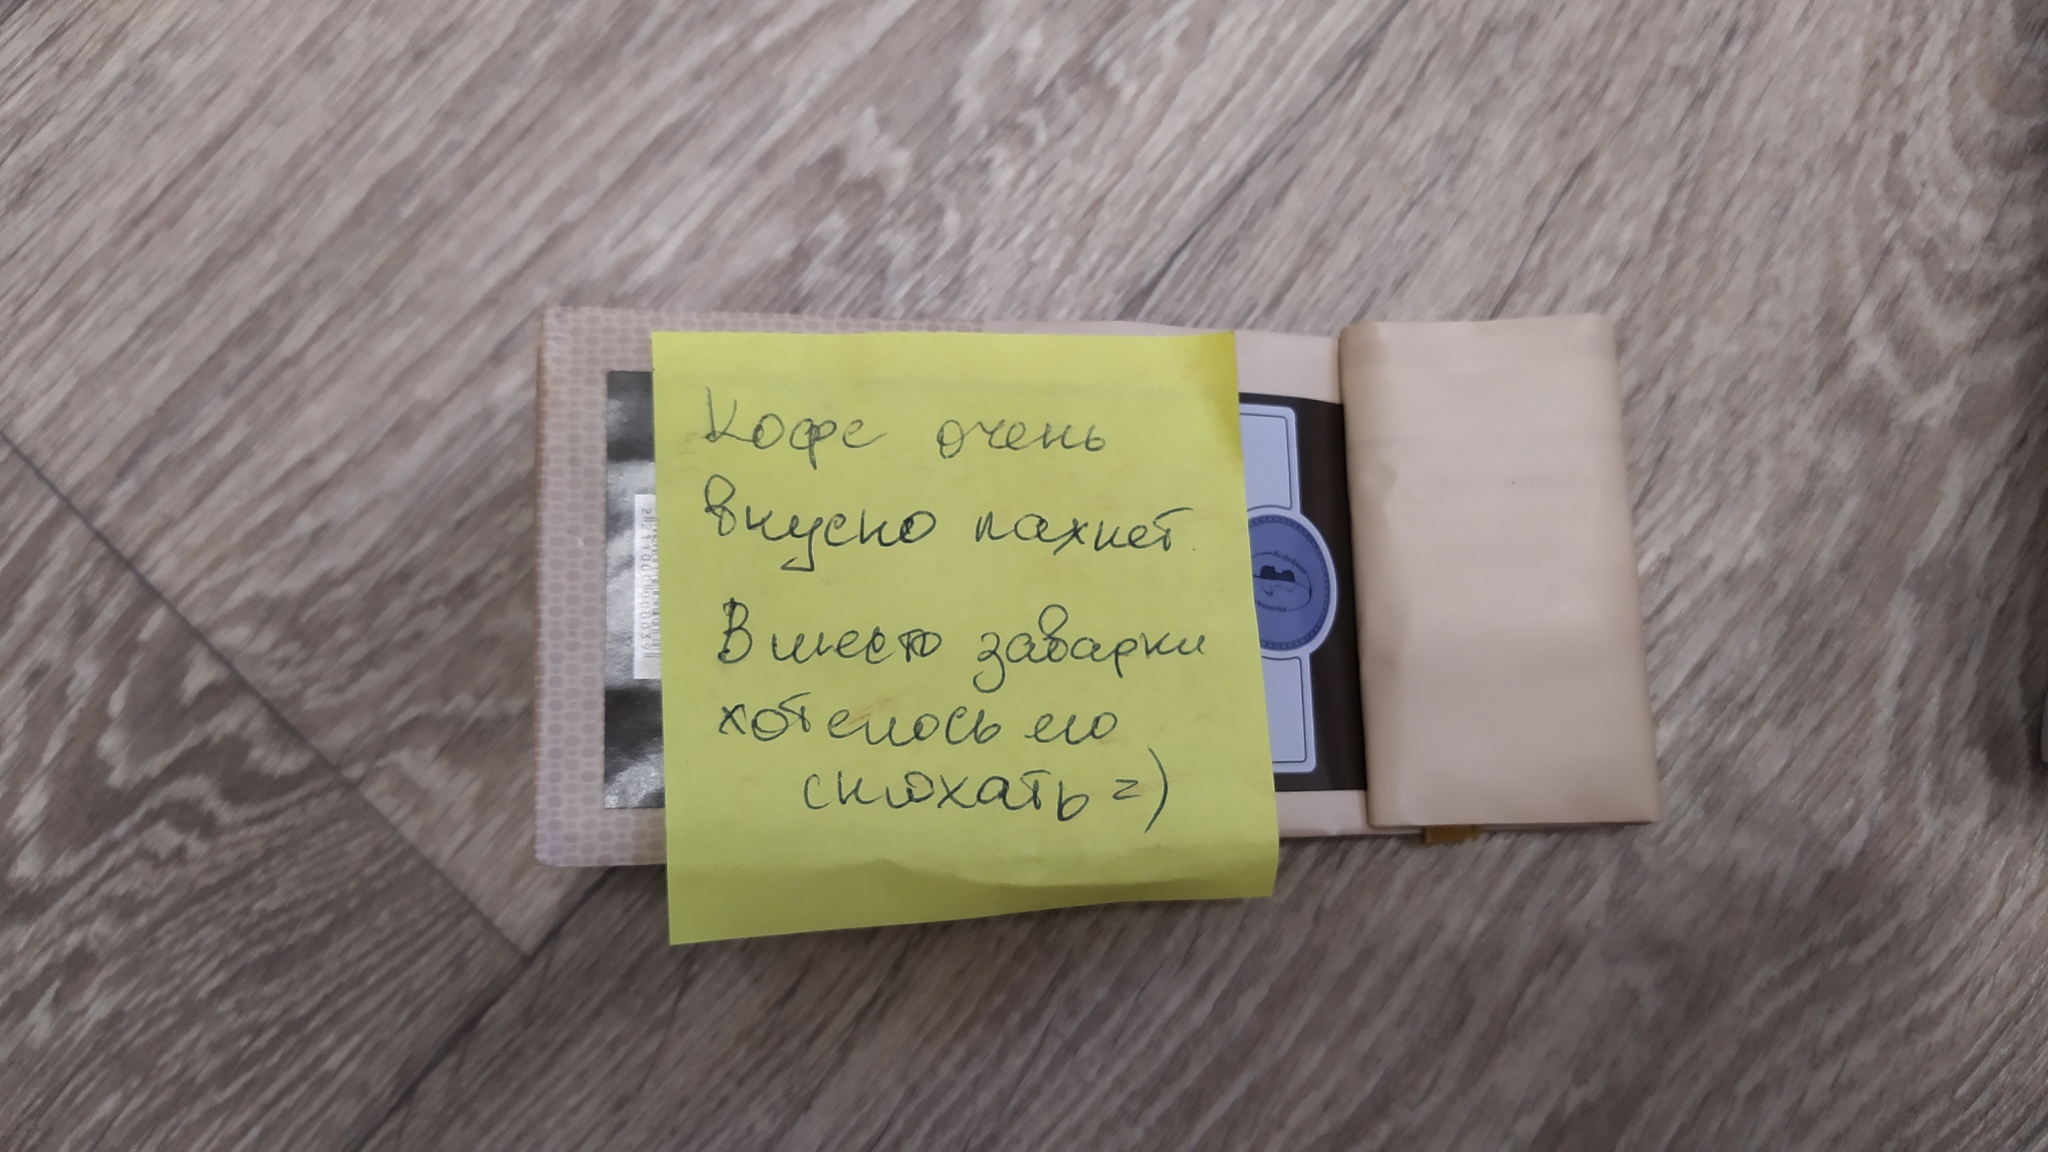 Кофе очень
вкусно пахнет.
Вместо заварки
хотелось его
снюхать =)